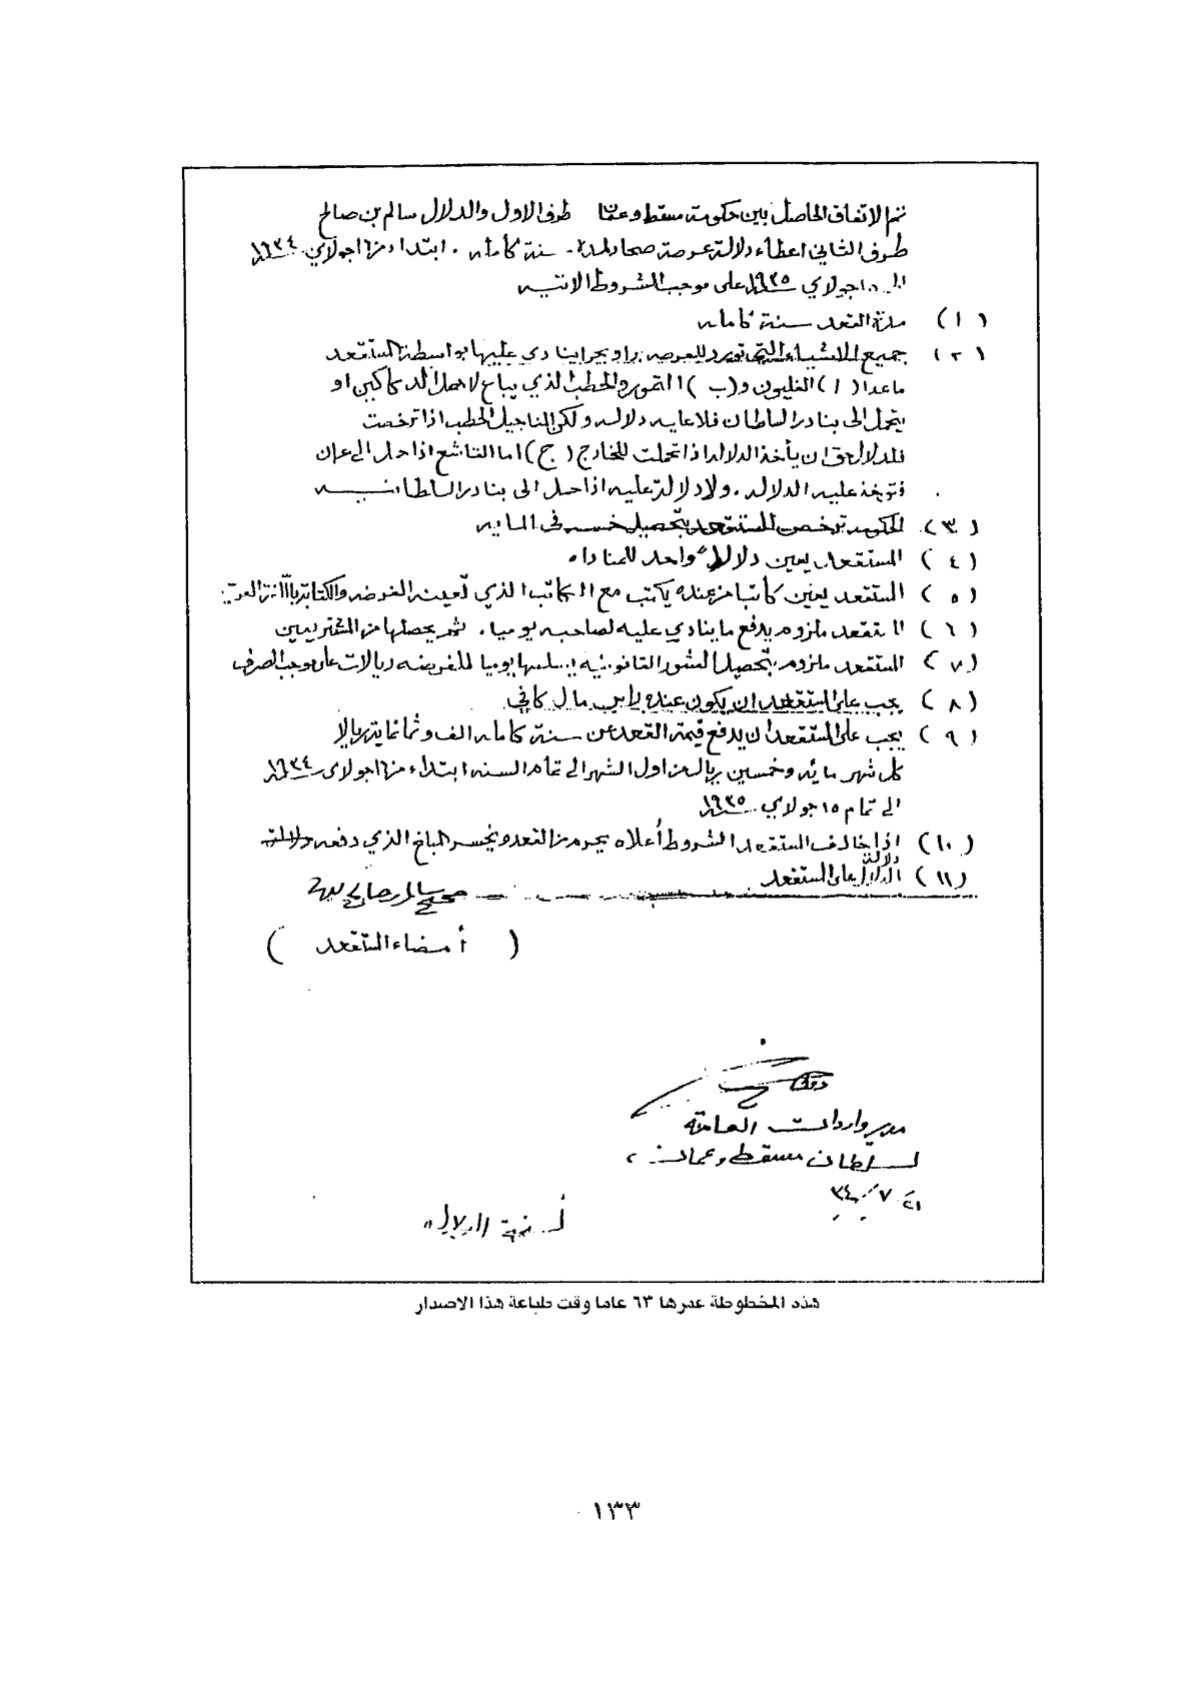 تم الاتفاق الحاصل بين حكومة مسقط وعمان طرف الاول والدلال سالم بن صالح
طرف الثاني اعطاء دلالة عرصة صحار لمدة سنة كامله . ابتداء من ١٦ جولاي سنة ١٩٣٤
الى ١٥ جولاي سنة ١٩٣٥ على موجب الشروط الاتيه
(١) مدة القعد سنة كامله
(٢) جميع الاشياء التي تورد للعرصه برا وبحرا ينادي عليها بواسطة المستقعد
ماعدا (ا) الغليون و(ب) التمور والحطب الذي يباع لاهل الدكاكين او
يتحمل الى بنادر السلطان فلا عليه دلاله ولكن النارجيل والحطب اذا ترخصت
للدلال حق ان يأخذ الدلاله اذا تحملت للخارج (ج) اما القاشع اذا حمل الى عمان
فتوخذ عليه الدلاله . ولا دلالة عليه اذا حمل الى بنادر السلطانيه
(٣) الحكومه ترخص للمستقعد بتحصيل خمسه في المايه
(٤) المستقعد يعين دلالا واحد للمناداه
(٥) المستقعد يعين كاتبا من عنده يكتب مع الكاتب الذي تعينه الفرضه والكتابة باللغة العربية
(٦) المستقعد ملزوم يدفع ما ينادي عليه لصاحبه يوميا . ثم يحصلها من المشتريين
(٧) المستقعد ملزوم بتحصيل العشور القانونيه يسلمها يوميا للفرضه ريالات على موجب الصرف
(٨) يجب على المستقعد ان يكون عنده راس مال كافي
(٩) يجب على المستقعد ان يدفع قيمة القعد عن سنة كامله الف وثمانماية ريالا
كل شهر مائه وخمسين ريال من اول الشهر الى تمام السنه ابتداء من ١٦ جولاى سنة ١٩٣٤
الى تمام ١٥ جولاي سنة ١٩٣٥
(١٠) اذا خالف المستقعد الشروط أعلاه يحرم من القعد ويخسر المبلغ الذي دفعه
(١١) دلالة الدلال على المستقعد
صحيح سالم بن صالح بيده
( أمضاء المستقعد )
مدير واردات العامة
لسلطان مسقط وعمان
٢١ / ٧ / ٣٤
هذه المخطوطة عمرها ٦٣ عاما وقت طباعة هذا الاصدار
١٣٣